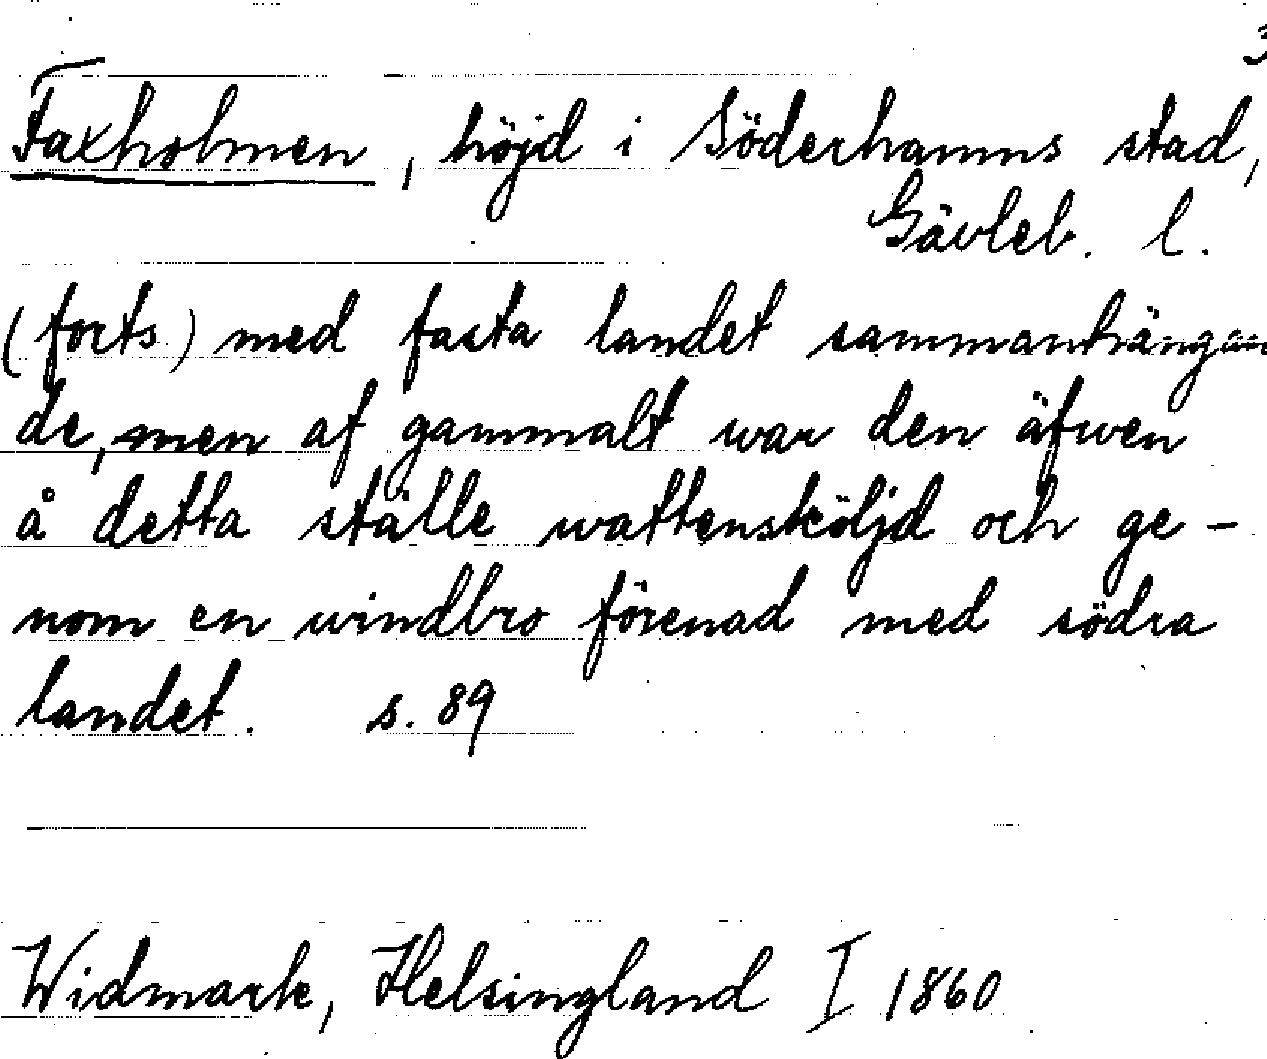 3
Faxholmen, höjd i Söderhamns stad,
Gävleb. l.
(forts) med fasta landet sammanhängan
de, men af gammalt war den äfwen
å detta ställe wattensköljd och ge-
nom en windbro förenad med södra
landet. s. 89
Widmark, Helsingland I 1860